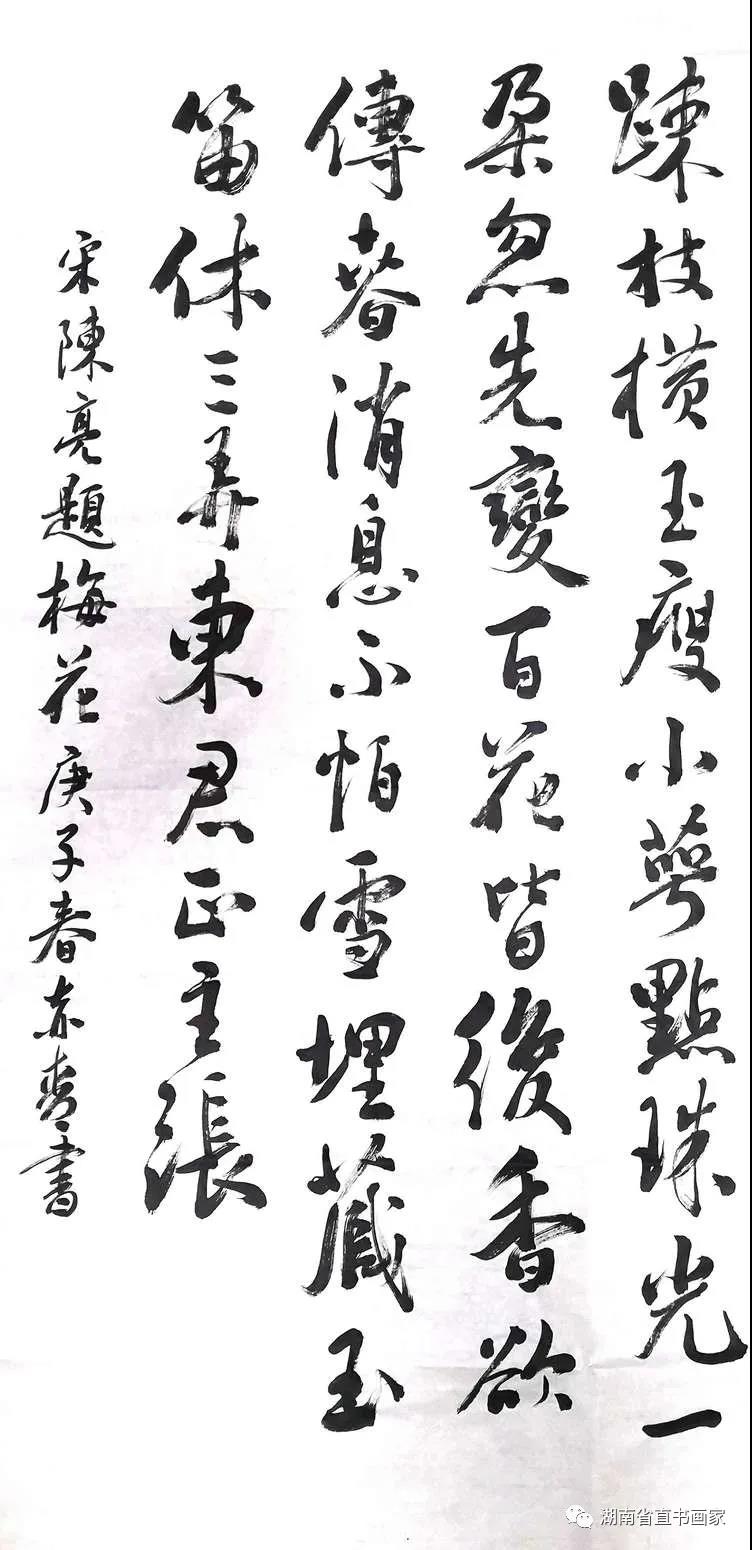 踈枝横玉瘦小萼點珠光一
朶忽先變百花皆後香欲
傳春消息不怕雪埋藏玉
笛休三弄東君正主張
宋陳亮題梅花庚子春書
湖南省直书画家